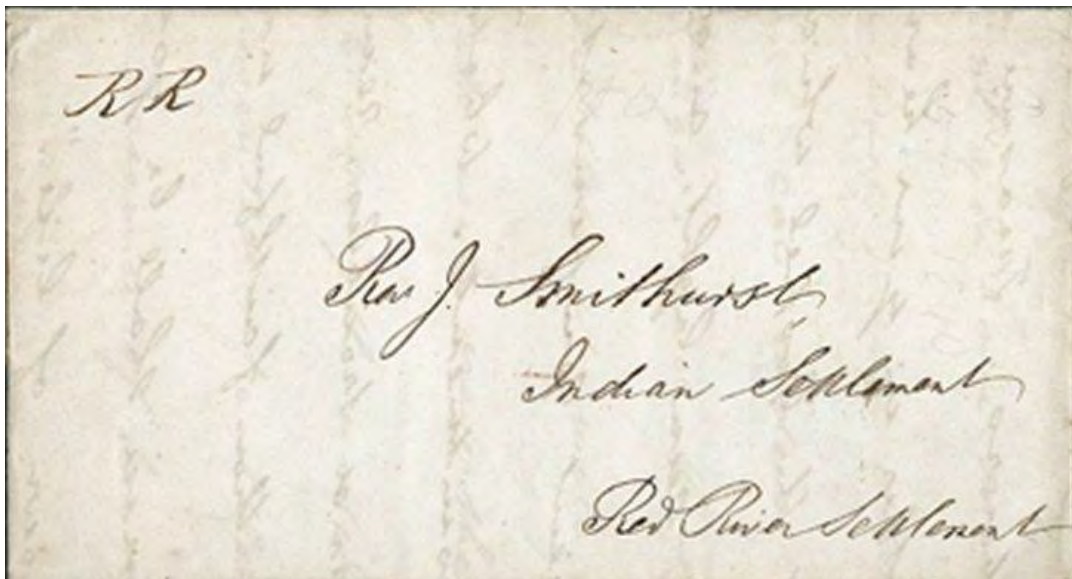 RR
Rev J. Smithurst
Indian Settlement
Red River Settlement